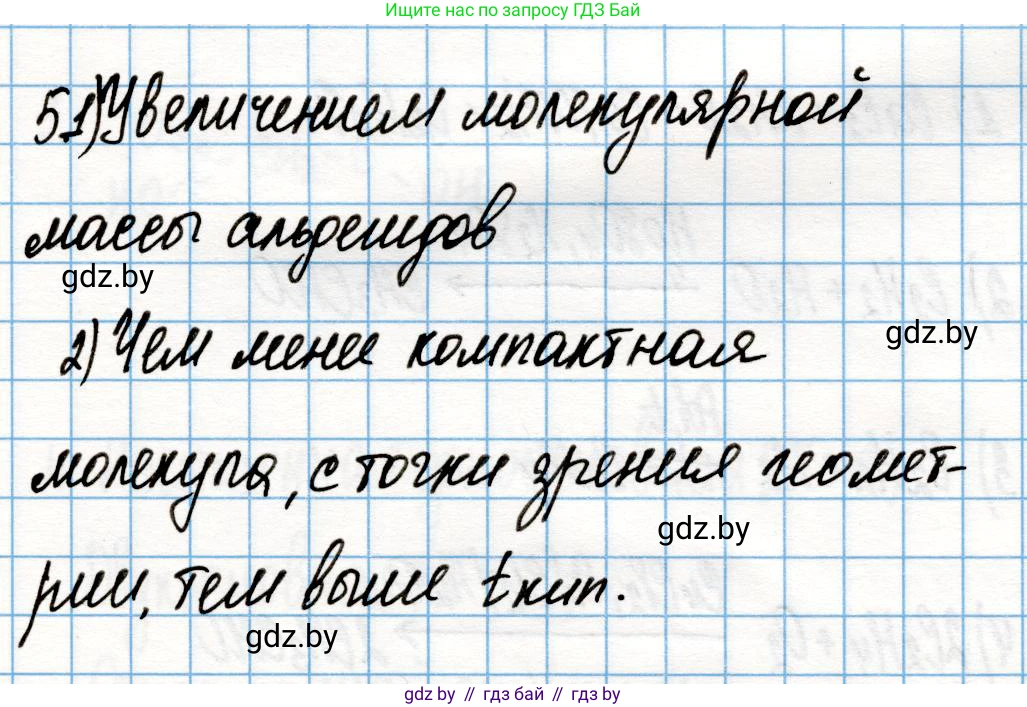 Ищите нас по запросу ГДЗ Бай
5.1) Увеличением молекулярной
массы альдегидов
gdz.by
2) Чем менее компактная
gdz.by
молекула, с точки зрения геомет-
gdz.by
рии, тем выше tкип.
gdz.by
gdz by // гдз бай // гдз by